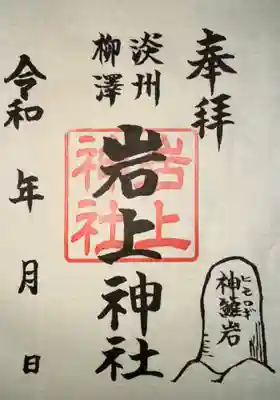 奉拝
淡州
柳澤
岩上神社
岩上
神社
令和 年 月 日
ヒモロギ
神籬岩